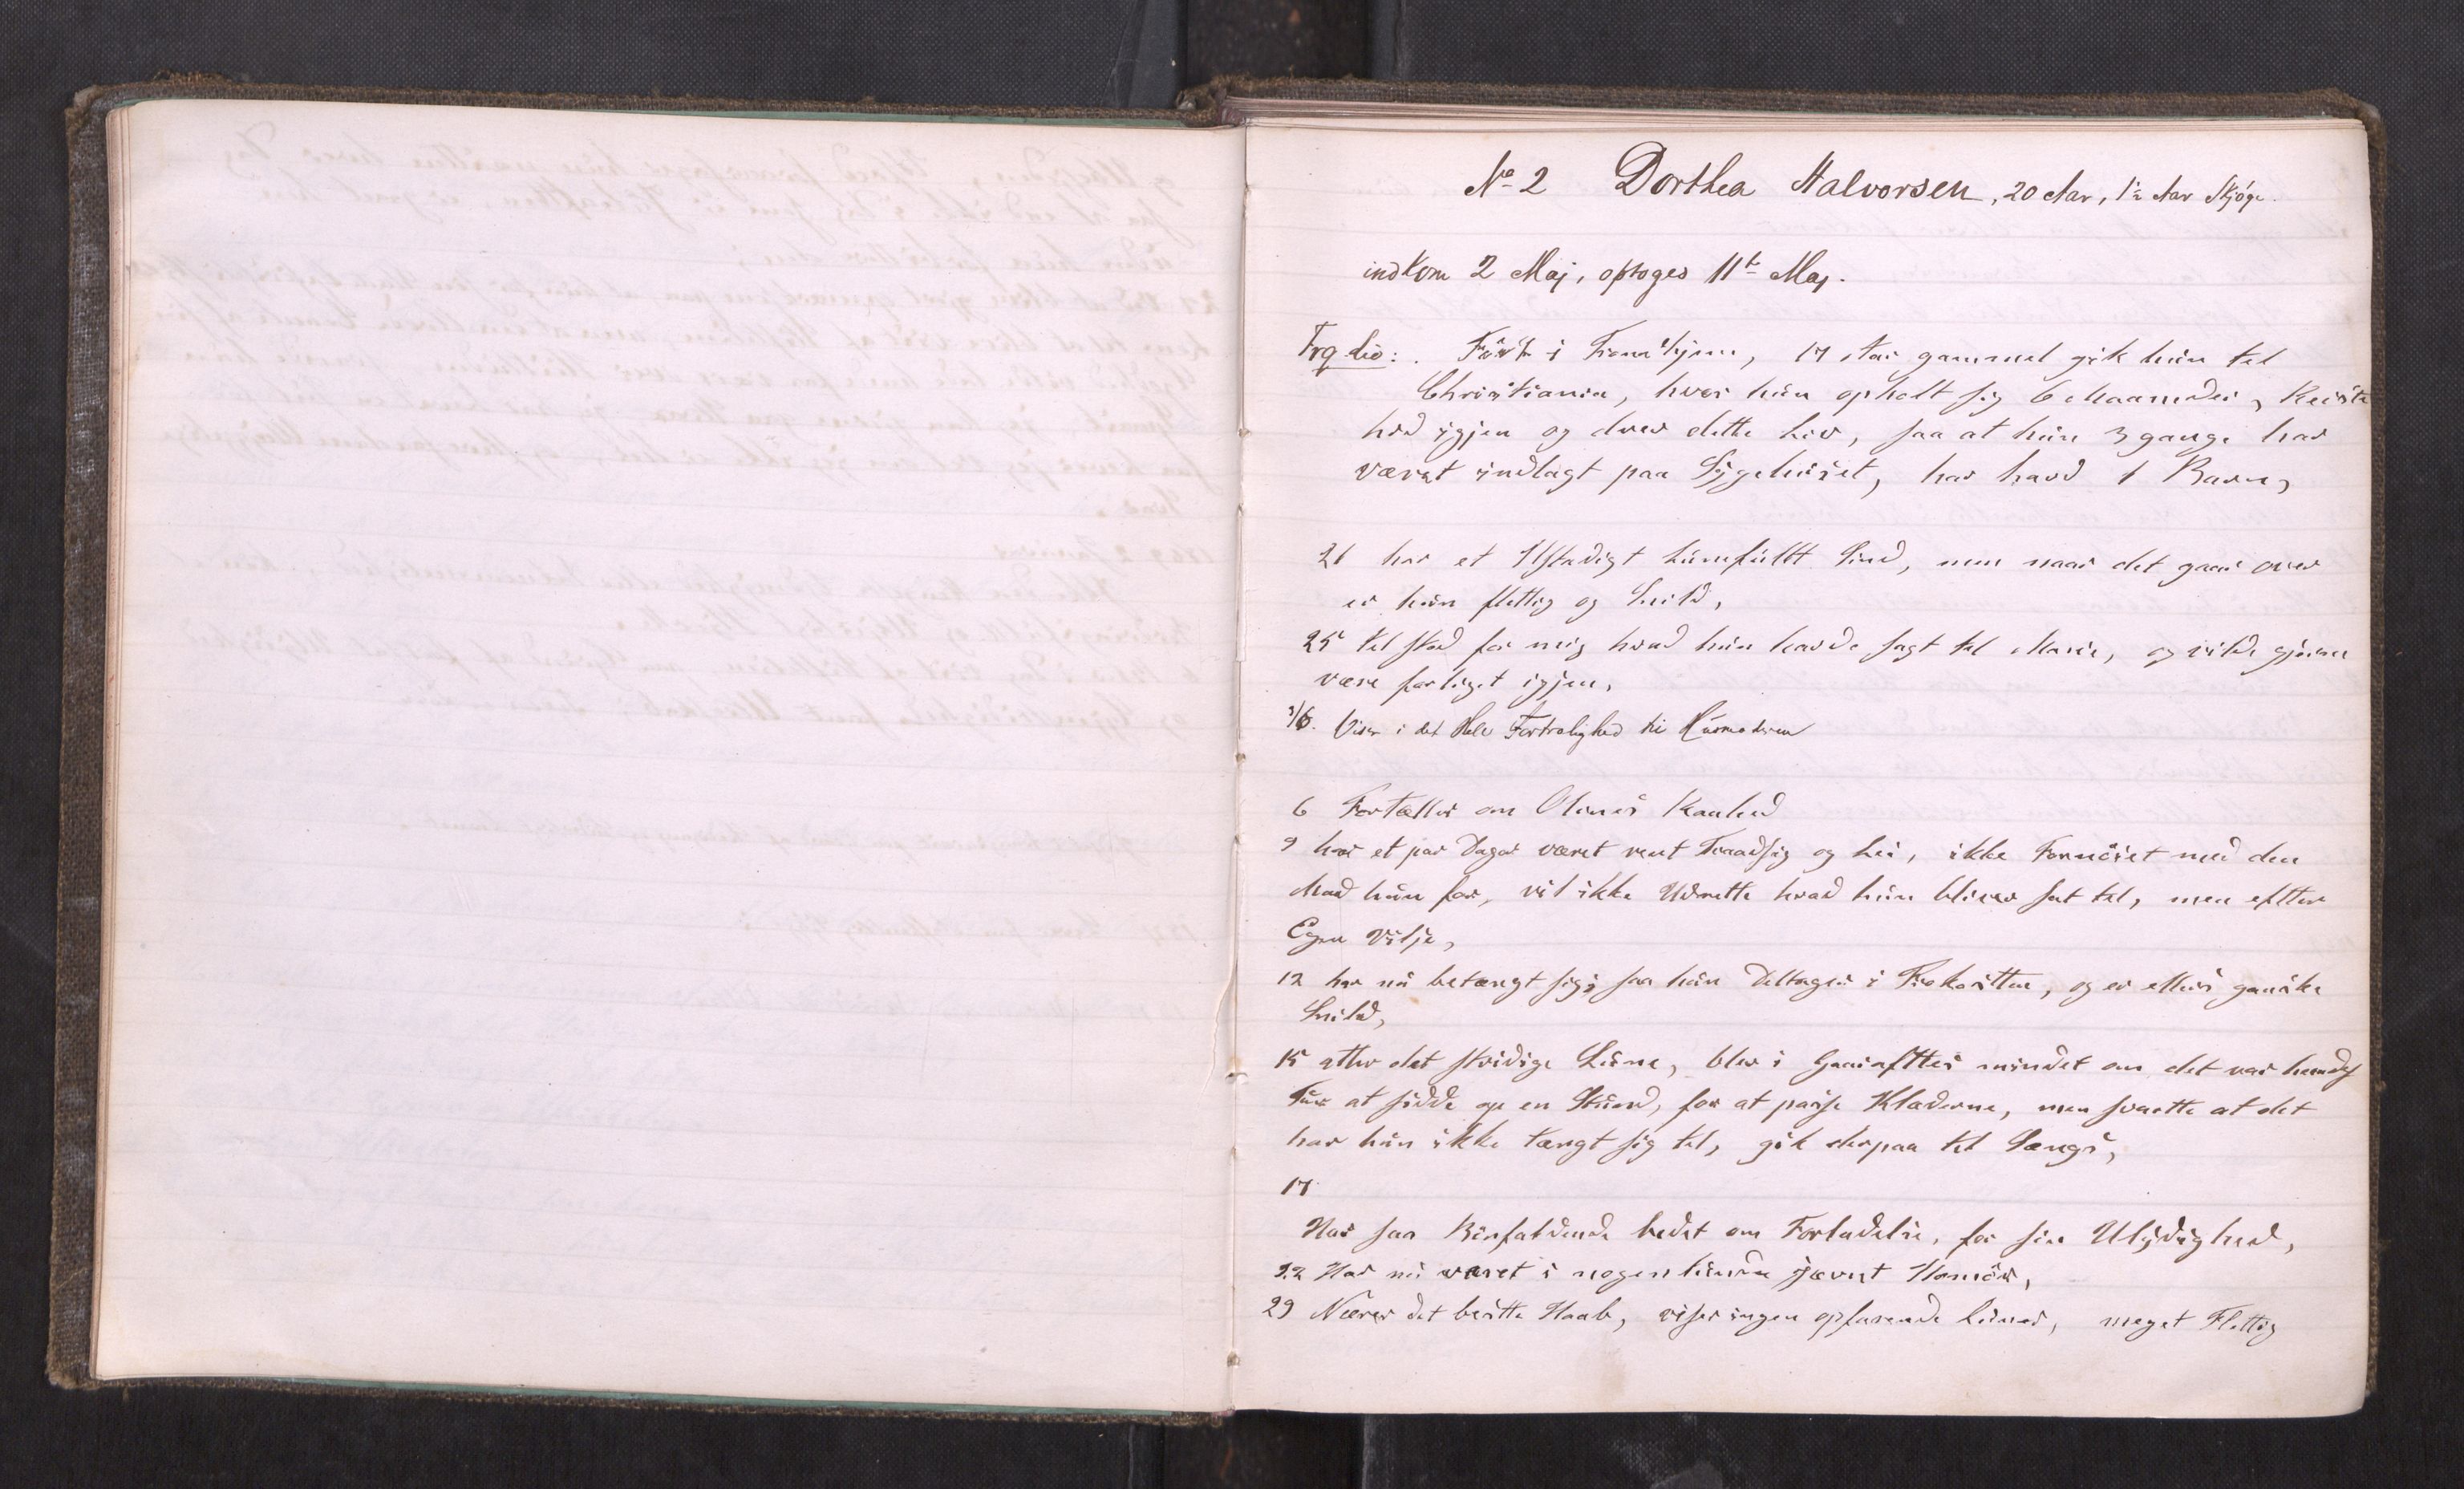 No 2 Dorthea Halvorsen, 20 Aar, 1½ Aar Skjöge.
indkom 2 Maj, optoges 11te Maj.
Frg. Liv: Född i Trondhjem, 17 Aar gammel gik hun til
Christiania, hvor hun opholt sig 6 Maaneder, Reiste
hid igjen og drev dette Liv, saa at hun 3 gange har
været indlagt paa Sygehuset, har havd 1 Barn,
21 har et Ustadigt Lunefullt Sind, men naar det gaar over
er hun flittig og Snild,
25 tilstod for mig hvad hun havde sagt til Marie, og vilde gjerne
være forliget igjen,
1/6. Viser i det Hele Fortrolighed til Husmoderen
6 Fortæller om Olines Kaahed
9 har et par Dagar været vent Traadsig og lei, ikke Fornöiet med den
Mad hun far, vil ikke Udrette hvad hun bliver sat til, men efter
Egen Vilje,
12 har nu betængt sig, saa hun Deltager i Frokosten, og er ellers ganske
Snild,
15 atter det stridige Lune, blev i Gaarafttes mindet om det var hendes
Tur at sidde op en Stund, for at passe Klæderne, men svarte at det
har hun ikke tængt sig til, gik derpaa til Sengs,
17
Har saa Bönfaldende bedet om Forladelse, for sin Ulydighed,
22 Har nu været i nogenlunde jævnt Homör,
29 Nærer det beste Haab, viser ingen opfarende Luner, meget Flittig